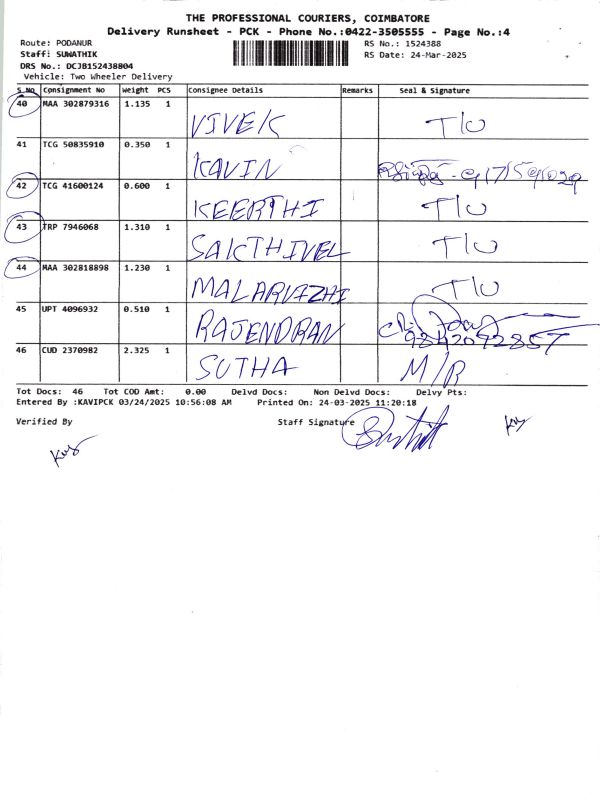 THE PROFESSIONAL COURIERS, COIMBATORE
Delivery Runsheet - PCK - Phone No.:0422-3505555 - Page No.:4
Route: PODANUR RS No.: 1524388
Staff: SUWATHIK RS Date: 24-Mar-2025
DRS No.: DCJB152438804
Vehicle: Two Wheeler Delivery
S.No Consignment No Weight PCS Consignee Details Remarks Seal & Signature
40 MAA 302879316 1.135 1 VIVEK T/U
41 TCG 50835910 0.350 1 KAVIN
42 TCG 41600124 0.600 1 KEERTHI T/U
43 TRP 7946068 1.310 1 SAKTHIVEL T/U
44 MAA 302818898 1.230 1 MALARVIZHI T/U
45 UPT 4096932 0.510 1 RAJENDRAN 9842092857
46 CUD 2370982 2.325 1 SUTHA M/R
Tot Docs: 46 Tot COD Amt: 0.00 Delvd Docs: Non Delvd Docs: Delvy Pts:
Entered By :KAVIPCK 03/24/2025 10:56:08 AM Printed On: 24-03-2025 11:20:18
Verified By Staff Signature